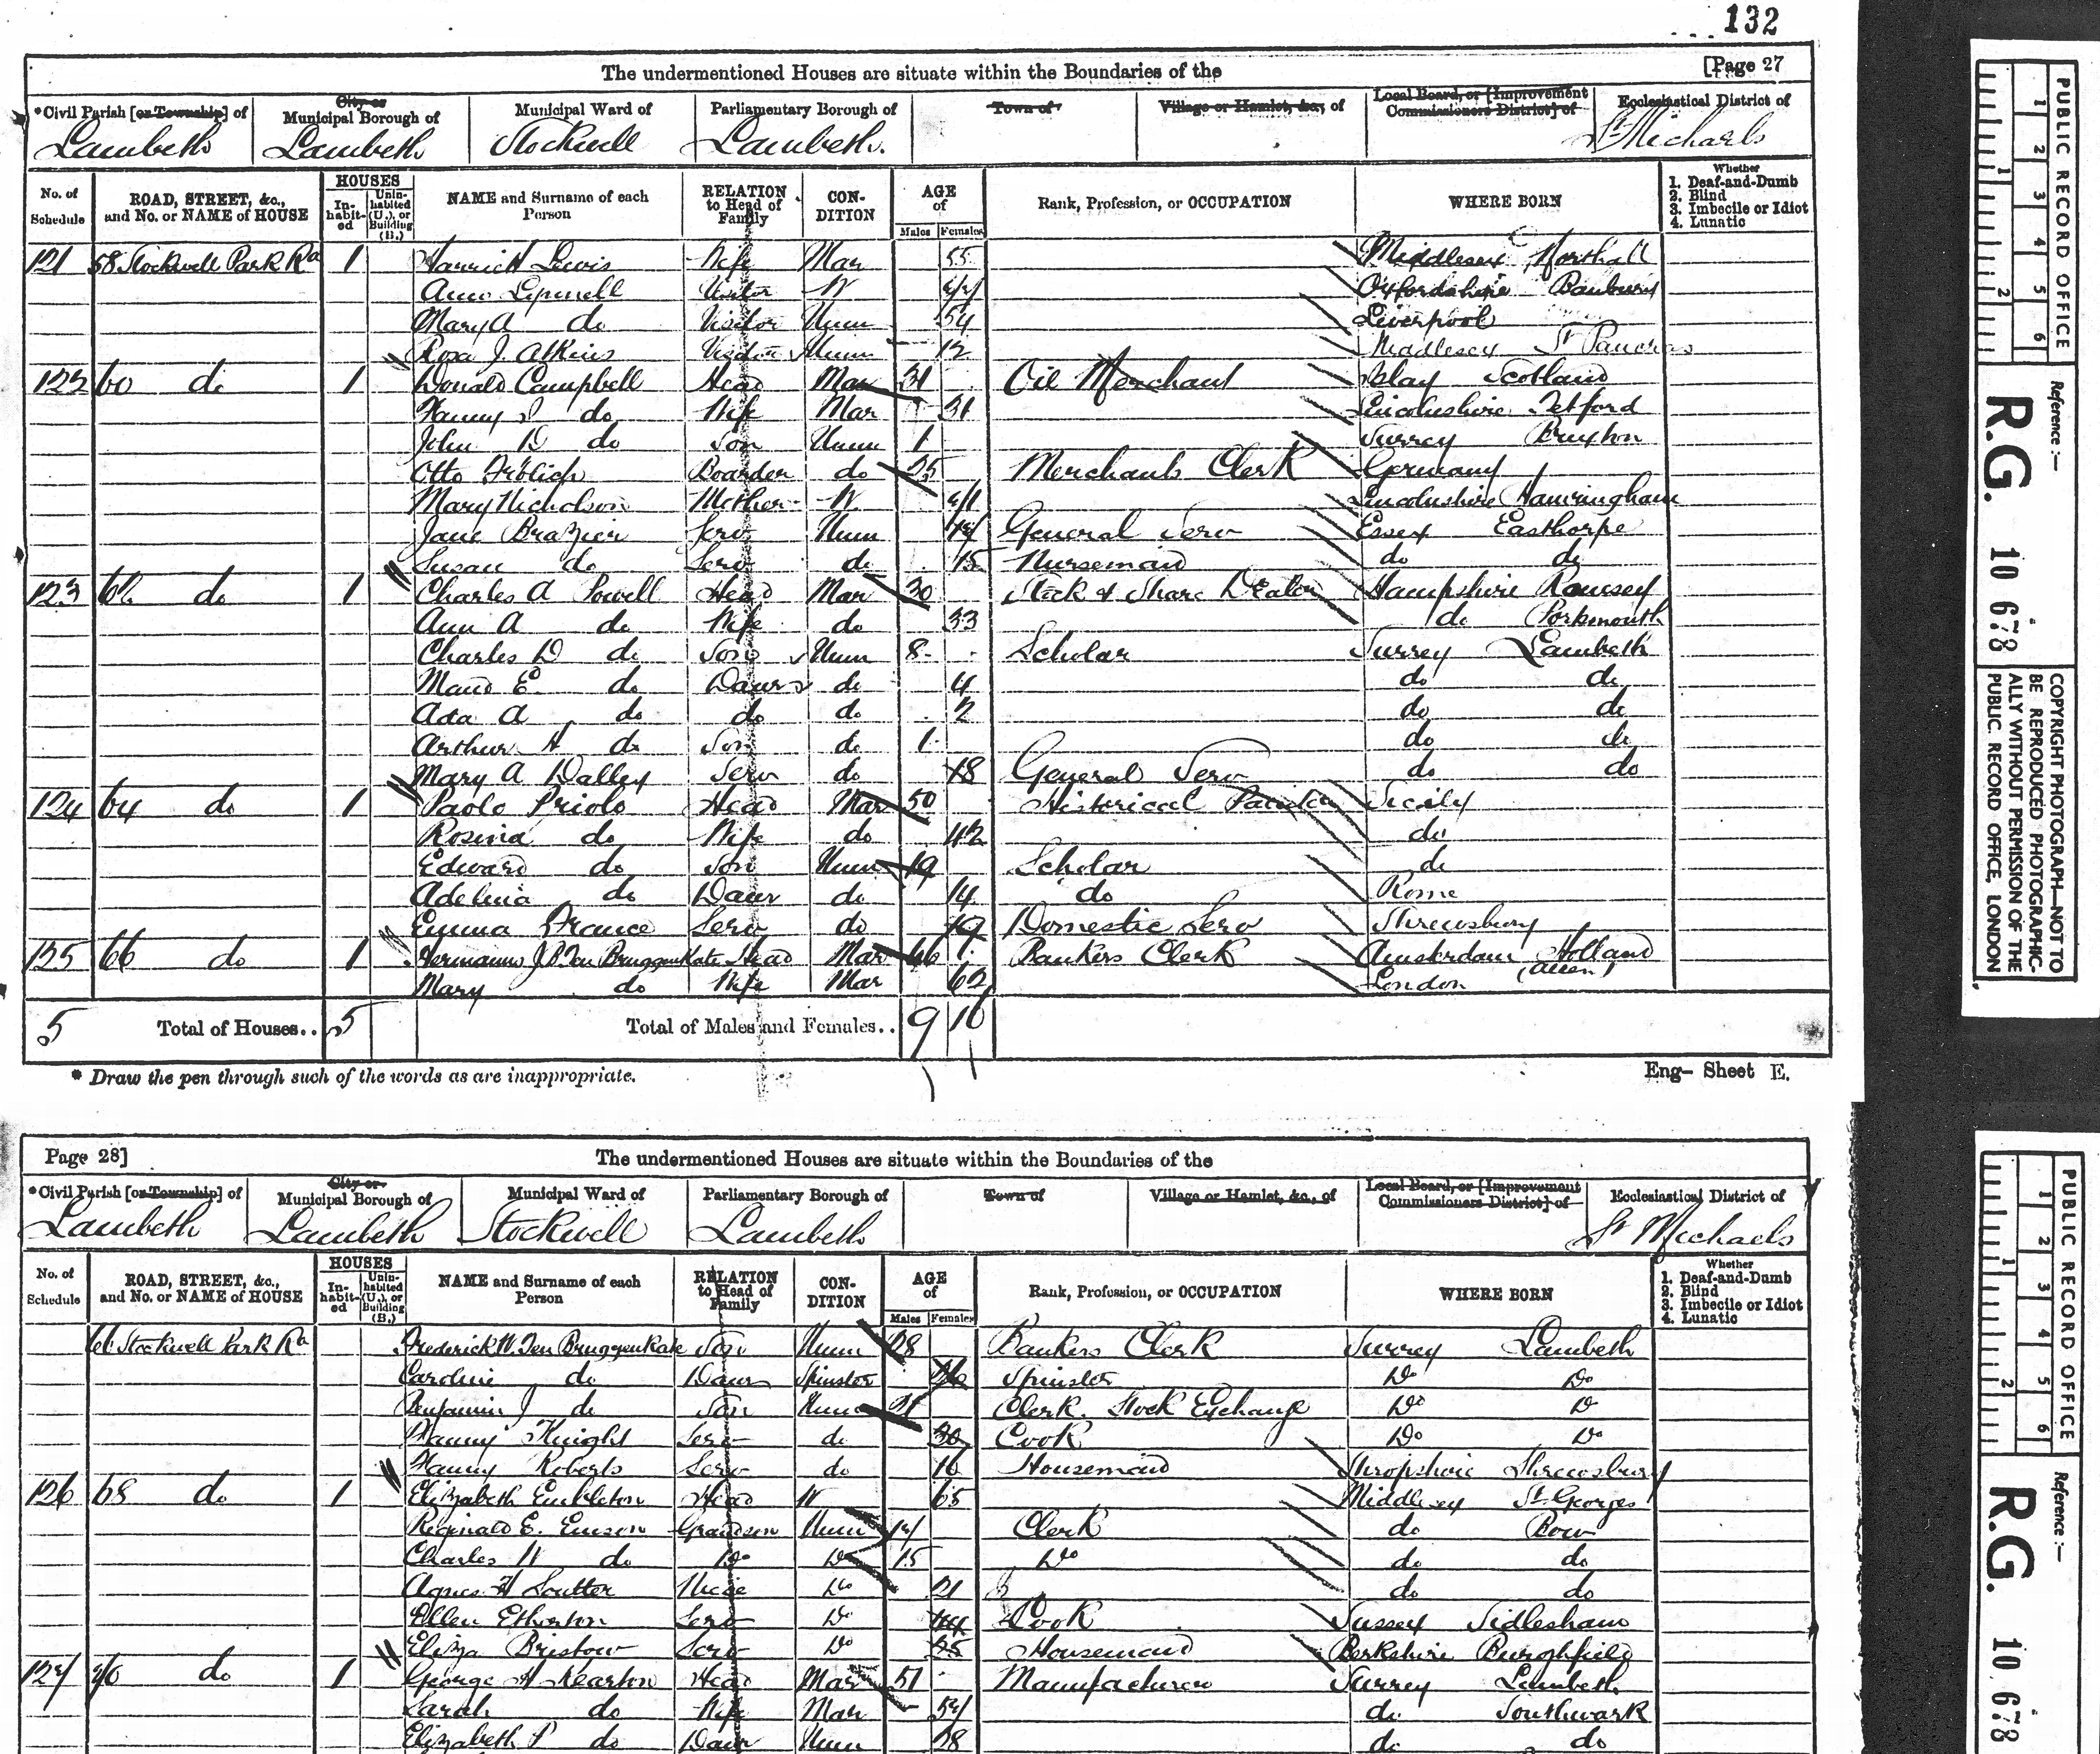 132
The undermentioned Houses are situate within the Boundaries of the [Page 27
*Civil Parish [or Township] of City or Municipal Borough of Municipal Ward of Parliamentary Borough of Town of Village or Hamlet, &c., of Local Board, or [Improvement Commissioners District] of Ecclesiastical District of
Lambeth Lambeth Stockwell Lambeth. St Michaels
No. of Schedule ROAD, STREET, &c., and No. or NAME of HOUSE HOUSES Inhabited Uninhabited (U.), or Building (B.) NAME and Surname of each Person RELATION to Head of Family CONDITION AGE of Males Females Rank, Profession, or OCCUPATION WHERE BORN Whether 1. Deaf-and-Dumb 2. Blind 3. Imbecile or Idiot 4. Lunatic
121 58 Stockwell Park Rd 1 Lewis Wife Mar 55 Middlesex Northall
Visitor W Oxfordshire Banbury
Mary A do Visitor Unm 54 Liverpool
Rosa J. Atkins Visitor Unm 12 Middlesex St Pancras
122 60 do 1 Donald Campbell Head Mar 31 Oil Merchant Islay Scotland
Fanny do Wife Mar 31 Lincolnshire Tetford
John D do Son Unm 1 Surrey Brixton
Otto Frölich Boarder do 25 Merchants Clerk Germany
Mary Nicholson Mother W Lincolnshire Hameringham
Jane Brazier Serv Unm General Serv Essex Easthorpe
Susan do Serv do 15 Nursemaid do do
123 62 do 1 Charles A Powell Head Mar 30 Stock & Share Dealer Hampshire Romsey
Ann A do Wife do 33 do Portsmouth
Charles D do Son Unm 8 Scholar Surrey Lambeth
Maud E do Daur do 4 do do
Ada A do do do 2 do do
Arthur H do Son do 1 do do
Mary A Dalley Serv do 18 General Serv do do
124 64 do 1 Paolo Priolo Head Mar 50 Historical Painter Sicily
Rosina do Wife do 42 do
Edward do Son Unm 19 Scholar do
Adelina do Daur do 14 do Rome
Emma France Serv do 19 Domestic Serv Shrewsbury
125 66 do 1 Hermanus J B Ten Bruggenkate Head Mar 66 Bankers Clerk Amsterdam Holland
(alien)
Mary do Wife Mar 62 London
5 Total of Houses.. 5 Total of Males and Females.. 9 16
* Draw the pen through such of the words as are inappropriate. Eng- Sheet E.
Page 28] The undermentioned Houses are situate within the Boundaries of the
*Civil Parish [or Township] of City or Municipal Borough of Municipal Ward of Parliamentary Borough of Town of Village or Hamlet, &c., of Local Board, or [Improvement Commissioners District] of Ecclesiastical District of
Lambeth Lambeth Stockwell Lambeth St Michaels
No. of Schedule ROAD, STREET, &c., and No. or NAME of HOUSE HOUSES Inhabited Uninhabited (U.), or Building (B.) NAME and Surname of each Person RELATION to Head of Family CONDITION AGE of Males Females Rank, Profession, or OCCUPATION WHERE BORN Whether 1. Deaf-and-Dumb 2. Blind 3. Imbecile or Idiot 4. Lunatic
66 Stockwell Park Rd Frederick W. Ten Bruggenkate Son Unm 28 Bankers Clerk Surrey Lambeth
Caroline do Daur Spinster 26 Spinster Do Do
Benjamin J do Son Unm 21 Clerk. Stock Exchange Do Do
Fanny Knight Serv do 30 Cook Do Do
Fanny Roberts Serv do 16 Housemaid Shropshire Shrewsbury
126 68 do 1 Elizabeth Embleton Head W 65 Middlesex St Georges
Reginald E. Emson Grandson Unm Clerk do Bow
Charles W do Do Do 15 Do do do
Agnes H Soutter Niece Do 21 do do
Ellen Etherton Serv Do Cook Sussex Sidlesham
Eliza Bristow Serv Do 25 Housemaid Berkshire Burghfield
127 70 do 1 George H Kearton Head Mar 51 Manufacturer Surrey Lambeth
Sarah do Wife Mar do Southwark
Elizabeth P do Daur Unm 28 do do
PUBLIC RECORD OFFICE
1 2 3 4 5 6
1 2
Reference :—
R.G. 10 678
COPYRIGHT PHOTOGRAPH—NOT TO BE REPRODUCED PHOTOGRAPHICALLY WITHOUT PERMISSION OF THE PUBLIC RECORD OFFICE, LONDON
PUBLIC RECORD OFFICE
1 2 3 4 5 6
1 2
Reference :—
R.G. 10 678